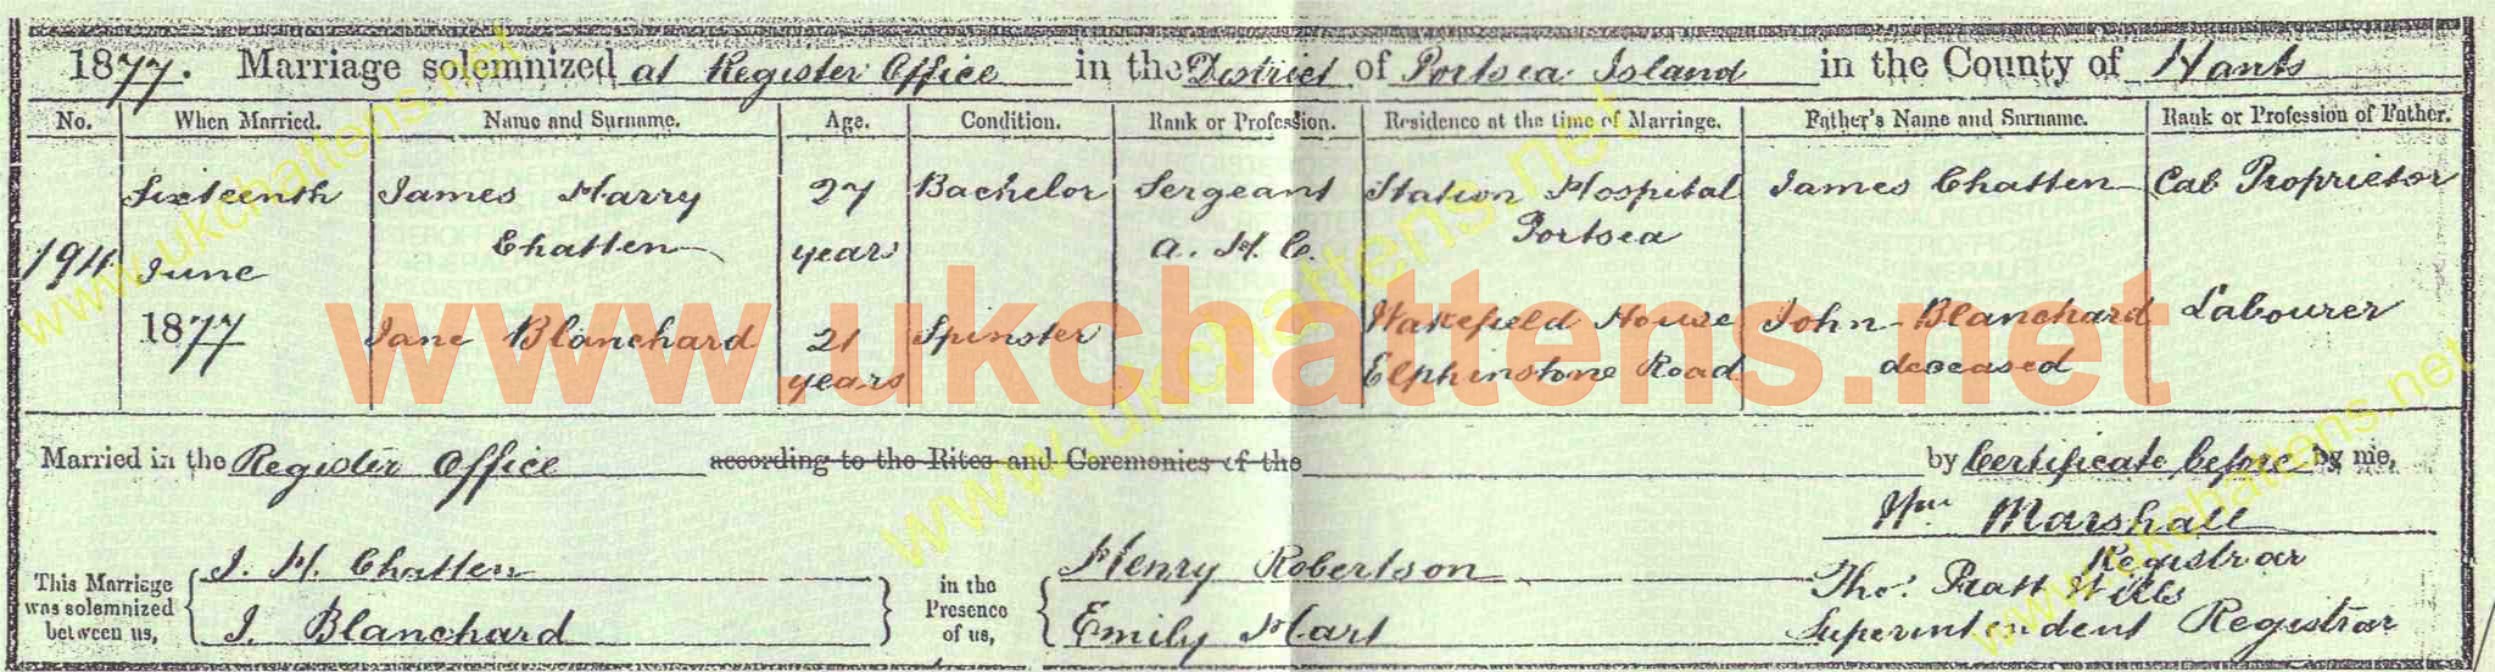 1877. Marriage solemnized at Register Office in the District of Portsea Island in the County of Hants
No. When Married. Name and Surname. Age. Condition. Rank or Profession. Residence at the time of Marriage. Father's Name and Surname. Rank or Profession of Father.
Sixteenth James Harry 27 Bachelor Sergeant Station Hospital James Chatten Cab Proprietor
Chatten years A. H. C. Portsea
194 June
1877 Jane Blanchard 21 Spinster Wakefield House John Blanchard Labourer
years Elphinstone Road deceased
www.ukchattens.net
Married in the Register Office according to the Rites and Ceremonies of the by Certificate before by me,
Wm Marshall
Registrar
This Marriage was solemnized between us,
J. H. Chatten
J. Blanchard
in the Presence of us,
Henry Robertson
Emily Hart
Thos. Pratt Wills
Superintendent Registrar
www.ukchattens.net
www.ukchattens.net
www.ukchattens.net